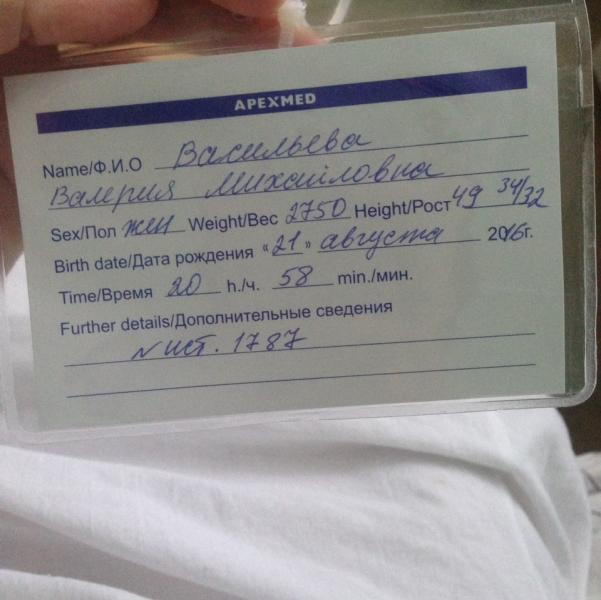 APEXMED
Name/Ф.И.О Васильева
Валерия Михайловна
Sex/Пол жен Weight/Вес 2750 Height/Рост 49 34/32
Birth date/Дата рождения «21» августа 2016г.
Time/Время 20 h./ч. 58 min./мин.
Further details/Дополнительные сведения
N ист. 1787